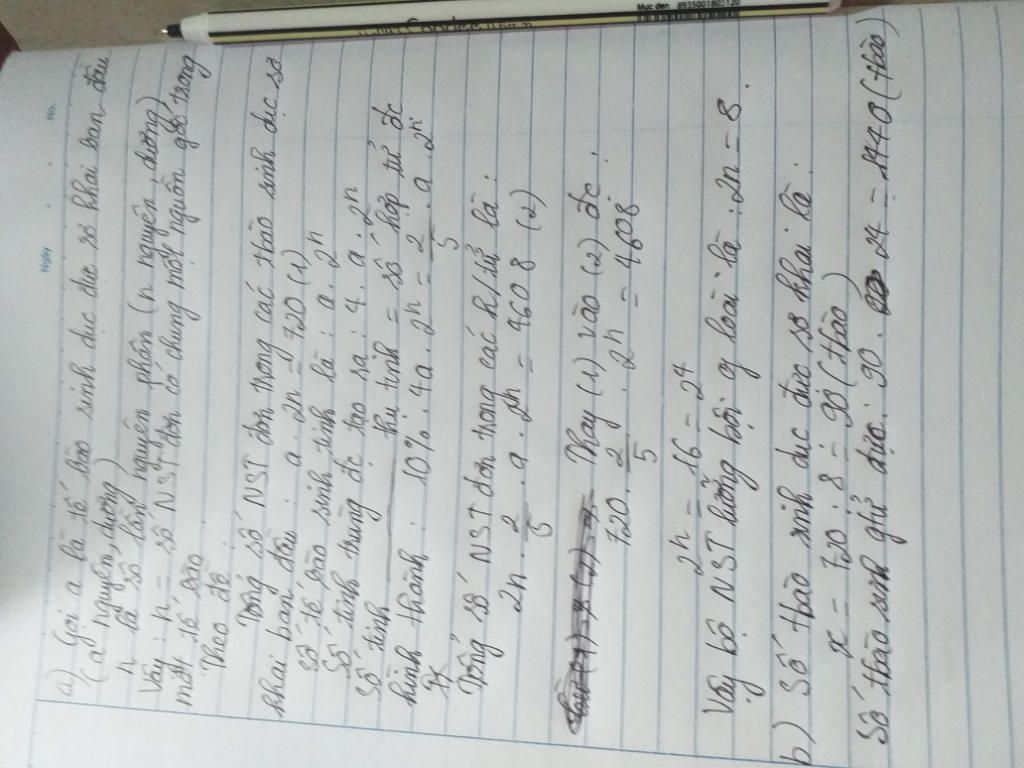 Ngày
No.
a) Gọi a là tế bào sinh dục đực sơ khai ban đầu
(a nguyên, dương)
n là số lần nguyên phân (n nguyên, dương)
Vậy: n = số NST đơn có chung một nguồn gốc trong
một tế bào
Theo đề:
Tổng số NST đơn trong các tbào sinh dục sơ
khai ban đầu: a. 2n = 720 (1)
Số tế bào sinh tinh là: a. 2^n
Số tinh trùng đc tạo ra: 4. a. 2^n
Số tinh thụ tinh = số hợp tử đc
hình thành: 10%. 4a. 2^n = 2/5 . a. 2^n
Tổng số NST đơn trong các h/tử là:
2n. 2/5 . a. 2^n = 4608 (2)
Thay (1) vào (2) đc:
720. 2/5 . 2^n = 4608
2^n = 16 = 2^4
Vậy bộ NST lưỡng bội of loài là: 2n = 8.
b) Số tbào sinh dục đực sơ khai là:
x = 720 : 8 = 90 (tbào)
Số tbào sinh giao tử đực: 90. 2^4 = 1440 (tbào)
Mực đen 8935001802120